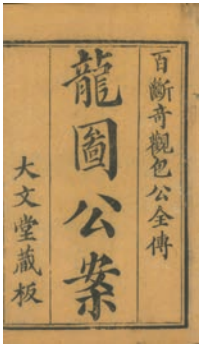 百斷奇觀包公全傳
龍圖公案
大文堂藏板